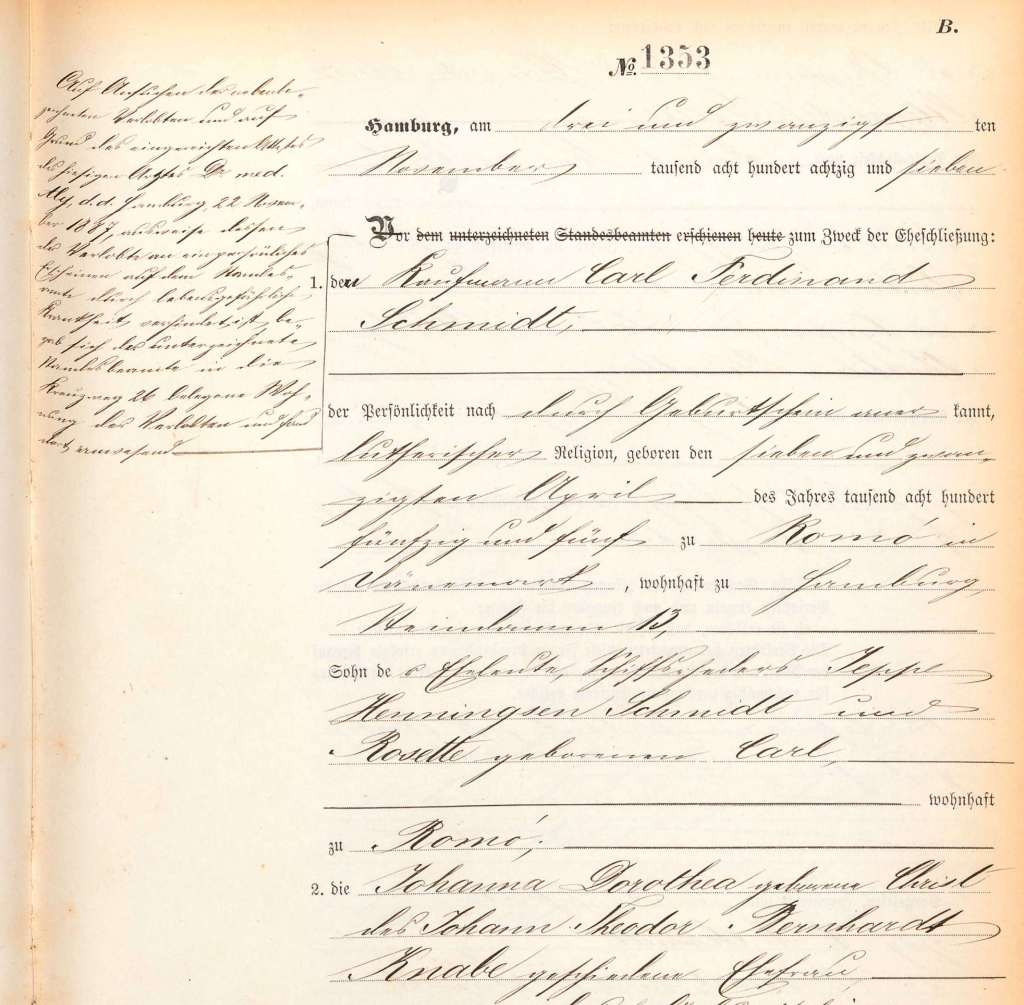 B.
No. 1353
Hamburg, am drei und zwanzigsten
November tausend acht hundert achtzig und sieben
Vor dem unterzeichneten Standesbeamten erschienen heute zum Zweck der Eheschließung:
1. den Kaufmann Carl Ferdinand
Schmidt,
der Persönlichkeit nach durch Geburtschein aner kannt,
lutherischer Religion, geboren den sieben und zwan-
zigsten April des Jahres tausend acht hundert
fünfzig und fünf zu Romö in
Dänemark, wohnhaft zu Hamburg,
Steindamm 13,
Sohn der Eheleute, Schiffsrheders Jeppe
Henningsen Schmidt und
Rosette geborenen Carl,
wohnhaft
zu Romö;
2. die Johanna Dorothea geborene Christ
des Johann Theodor Bernhardt
Knabe geschiedene Ehefrau,
Auf Ansuchen der nebenbe-
zeichneten Verlobten und auf
Grund des eingereichten Attestes
des hiesigen Arztes Dr. med.
Aly, d.d. Hamburg, 22 Novem-
ber 1887, ausweise dessen
der Verlobte an ein persönliches
Erscheinen auf dem Standes-
amte durch lebensgefährliche
Krankheit verhindert ist, be-
gab sich der unterzeichnete
Standesbeamte in die
Kreuzweg 26 belegene Woh-
nung des Verlobten und fand
dort anwesend